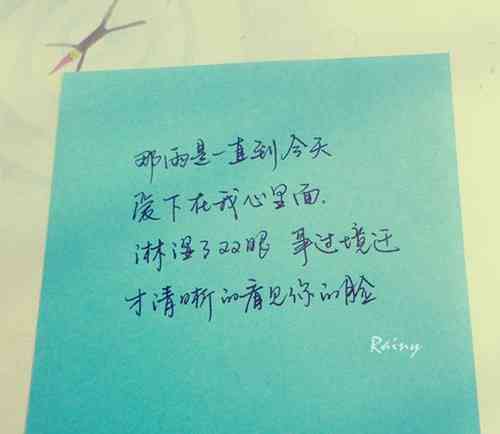 那雨是一直到今天
下在我心里面.
淋湿了双眼 事过境迁
才清晰的看见你的脸
Rainy